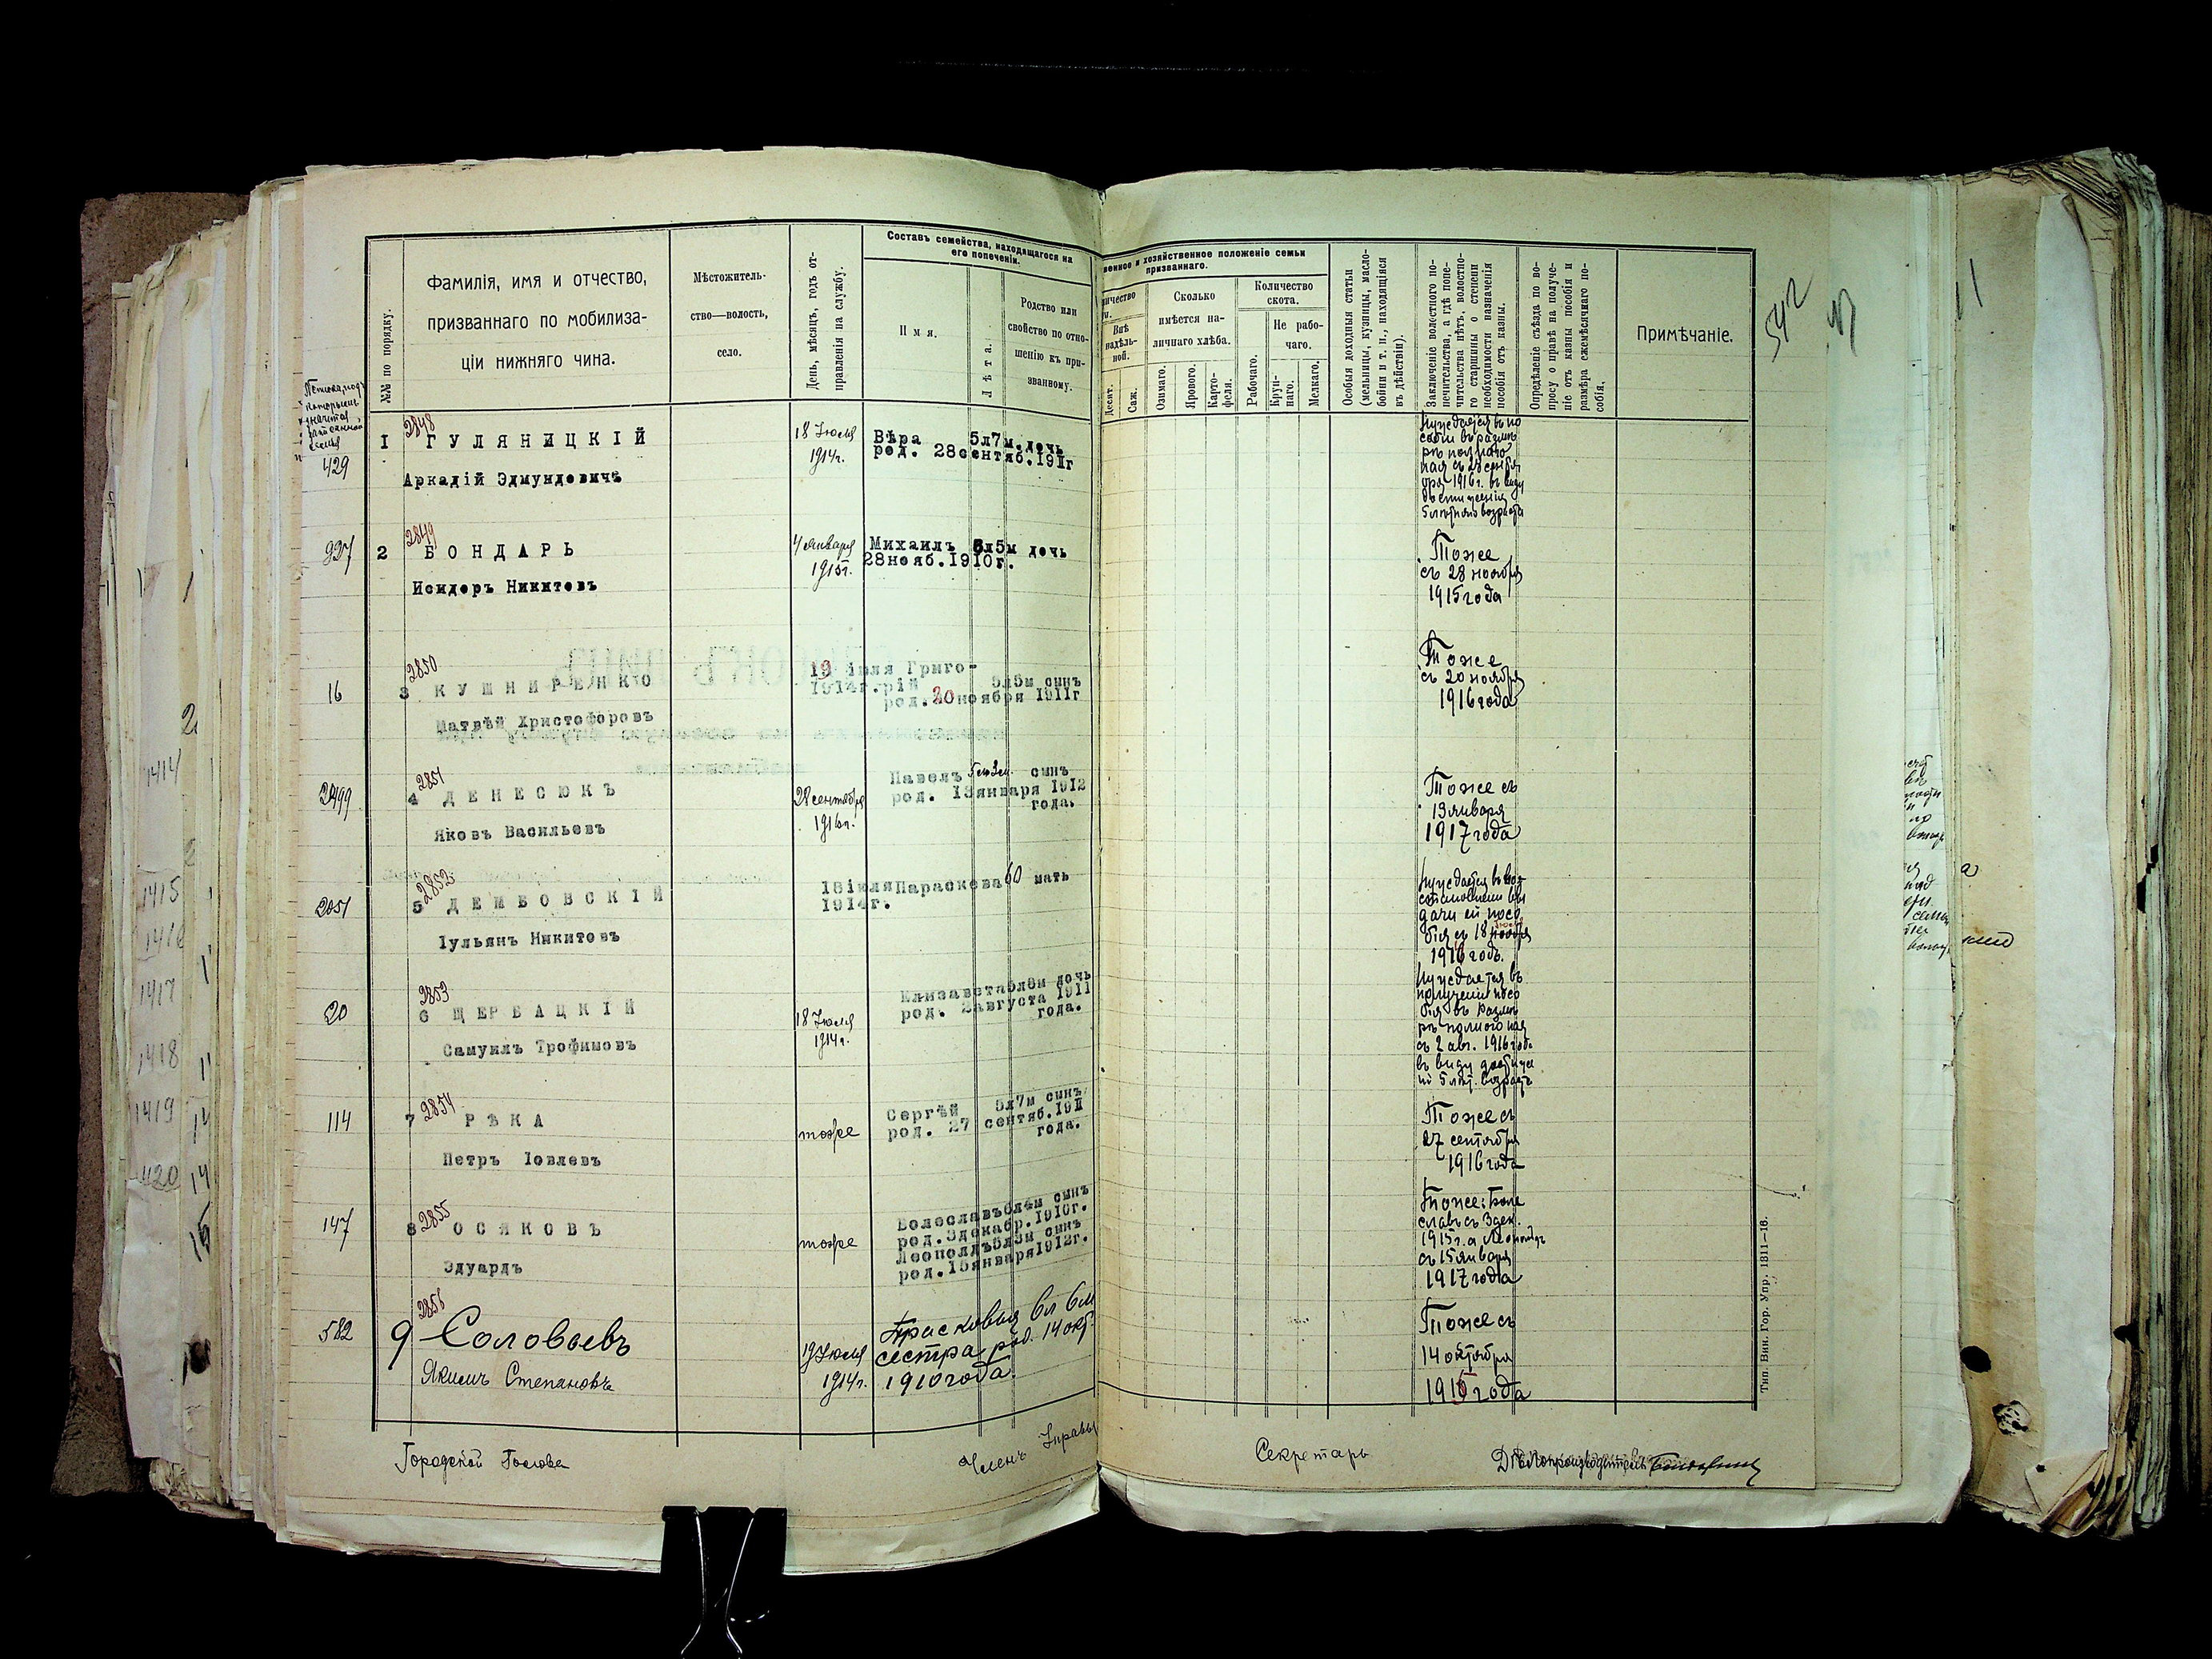 542
№№ по порядку.
Фамилія, имя и отчество,
призваннаго по мобилиза-
ціи нижняго чина.
Мѣстожитель-
ство—волость,
село.
День, мѣсяцъ, годъ от-
правленія на службу.
Составъ семейства, находящагося на
его попеченіи.
Имя.
Лѣта.
Родство или
свойство по отно-
шенію къ при-
званному.
хозяйственное положеніе семьи
призваннаго.
Внѣ
надѣль-
ной.
Десят.
Саж.
Сколько
имѣется на-
личнаго хлѣба.
Озимаго.
Яроваго.
Карто-
феля.
Количество
скота.
Рабочаго.
Не рабо-
чаго.
Круп-
наго.
Мелкаго.
Особыя доходныя статьи
(мельницы, кузницы, масло-
бойни и т. п., находящіяся
въ дѣйствіи).
Заключеніе волостного по-
печительства, а гдѣ попе-
чительства нѣтъ, волостно-
го старшины о степени
необходимости назначенія
пособія отъ казны.
Опредѣленіе съѣзда по во-
просу о правѣ на получе-
ніе отъ казны пособія и
размѣра ежемѣсячнаго по-
собія.
Примѣчаніе.
429
1
2848
ГУЛЯНИЦКІЙ
Аркадій Эдмундовичъ
18 Іюля
1914г.
Вѣра 5л7м. дочь
род. 28сентяб.1911г
Нуждается въ по
собіи въ размѣ
рѣ полнаго
пая съ 28 сентяб
ря 1916г. въ виду
достиженія
5 лѣтняго возраста
937
2
2849
БОНДАРЬ
Исидоръ Никитовъ
4 января
1915г.
Михаилъ 5л5м дочь
28нояб.1910г.
Тоже
съ 28 ноября
1915 года
16
3
2850
КУШНИРЕНКО
Матвѣй Христофоровъ
19 іюля Григо-
1914г.рій 5л5м сынъ
род.20ноября 1911г
Тоже
съ 20 ноября
1916 года
2499
4
2851
ДЕНЕСЮКЪ
Яковъ Васильевъ
28 сентября
1916г.
Павелъ сынъ
род. 13января 1912
года.
Тоже съ
13 января
1917 года
2051
5
2852
ДЕМБОВСКІЙ
Іульянъ Никитовъ
18іюля Параскева 60 мать
1914г.
Нуждается въ воз-
становленіи вы
дачи ей посо
бія съ 18
1916 годъ.
20
6
2853
ЩЕРБАЦКІЙ
Самуилъ Трофимовъ
18 Іюля
1914г.
Елизавета 5л8м дочь
род. 2августа 1911
года.
Нуждается въ
полученіи посо
бія въ размѣ
рѣ полного пая
съ 2 авг. 1916 года
въ виду достиже
нія 5 лѣт. возраста
114
7
2854
РѢКА
Петръ Іовлевъ
тоже
Сергѣй 5л7м сынъ
род. 27 сентяб.1911
года.
Тоже съ
27 сентября
1916 года
147
8
2855
ОСЯКОВЪ
Эдуардъ
тоже
Болеславъ6л4м сынъ
род.3декабр.1910г.
Леополдъ5л3м сынъ
род.15января1912г.
Тоже: Боле
славъ съ 3 дек.
1915г. а Леопольдъ
съ 15 января
1917 года
582
9
2856
Соловьевъ
Якимъ Степановъ
19 Іюля
1914г.
Прасковья 6л 6м
сестра род. 14 окт.
1910 года.
Тоже съ
14 октября
1915 года
Городской Голова
Членъ Управы
Секретарь
Дѣлопроизводитель
Тип. Вин. Гор. Упр. 1311—16.
1414
1415
1416
1417
1418
1419
420